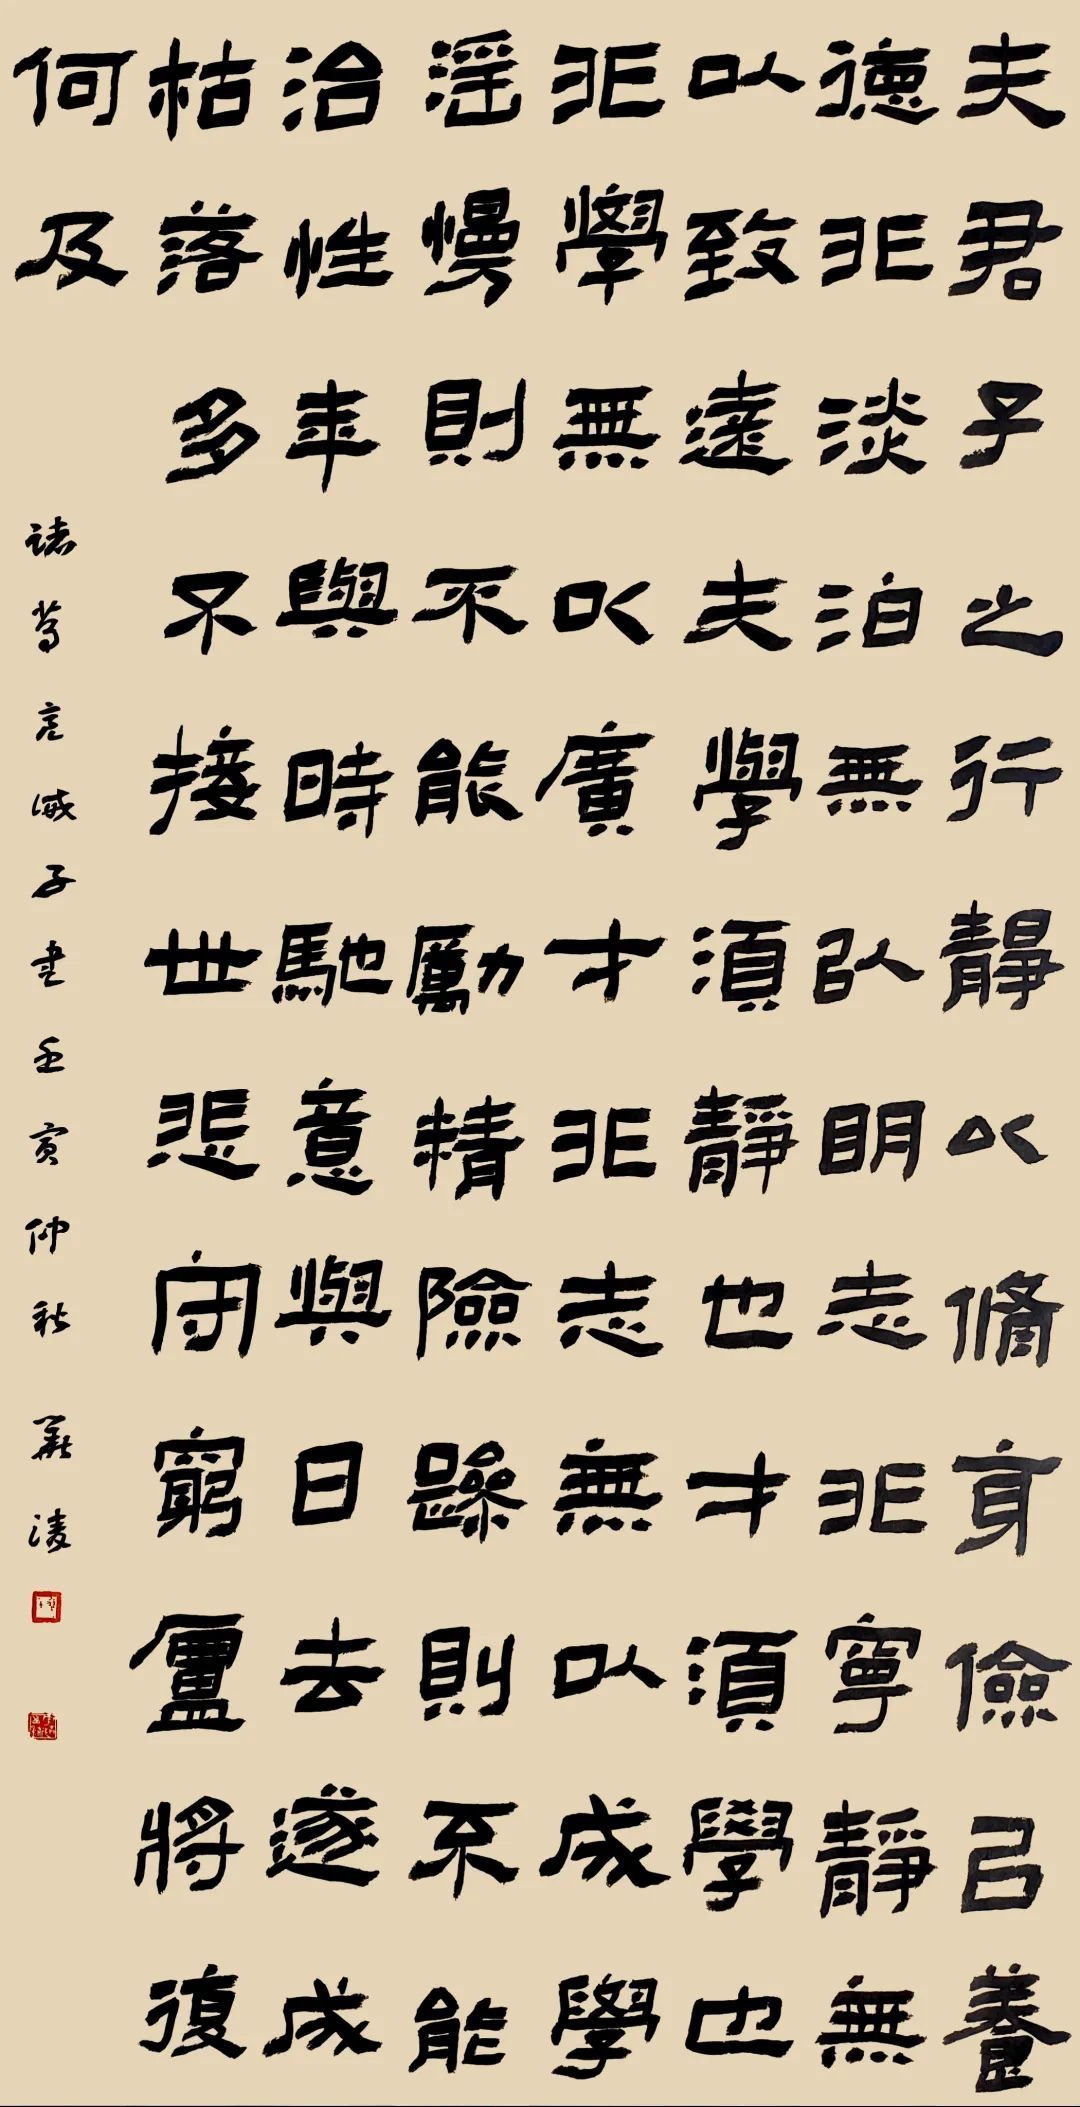 夫君子之行靜以脩身儉㠯養
德非淡泊無以明志非寧靜無
以致遠夫學須靜也才須學也
非學無以廣才非志無以成學
滛慢則不能勵精險躁則不能
治性年與時馳意與日去遂成
枯落多不接世悲守窮廬將復
何及
諸葛亮誡子書壬寅仲秋